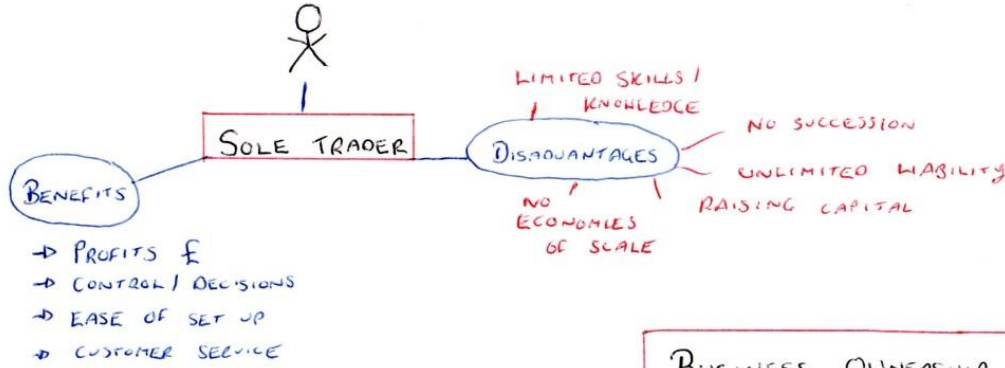 SOLE TRADER
BENEFITS
→ PROFITS £
→ CONTROL / DECISIONS
→ EASE OF SET UP
→ CUSTOMER SERVICE
DISADVANTAGES
LIMITED SKILLS /
KNOWLEDGE
NO SUCCESSION
UNLIMITED LIABILITY
RAISING CAPITAL
NO
ECONOMIES
OF SCALE
BUSINESS OWNERSHIP